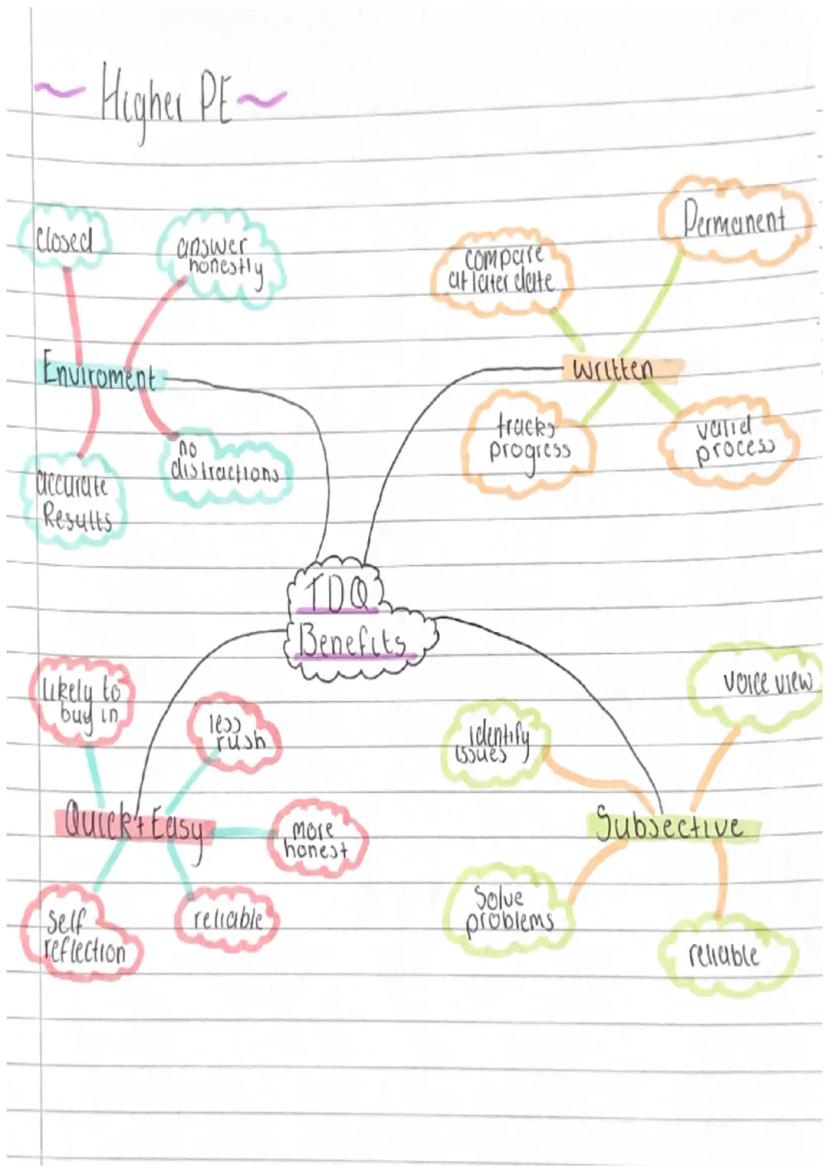 ~ Higher PE ~
closed
answer
honestly
Enviroment
accurate
Results
no
distractions
compare
at later date
Permanent
written
tracks
progress
valid
process
TDQ
Benefits
likely to
buy in
less
rush
Quick + Easy
more
honest
self
reflection
reliable
identify
issues
voice view
Subjective
Solve
problems
reliable